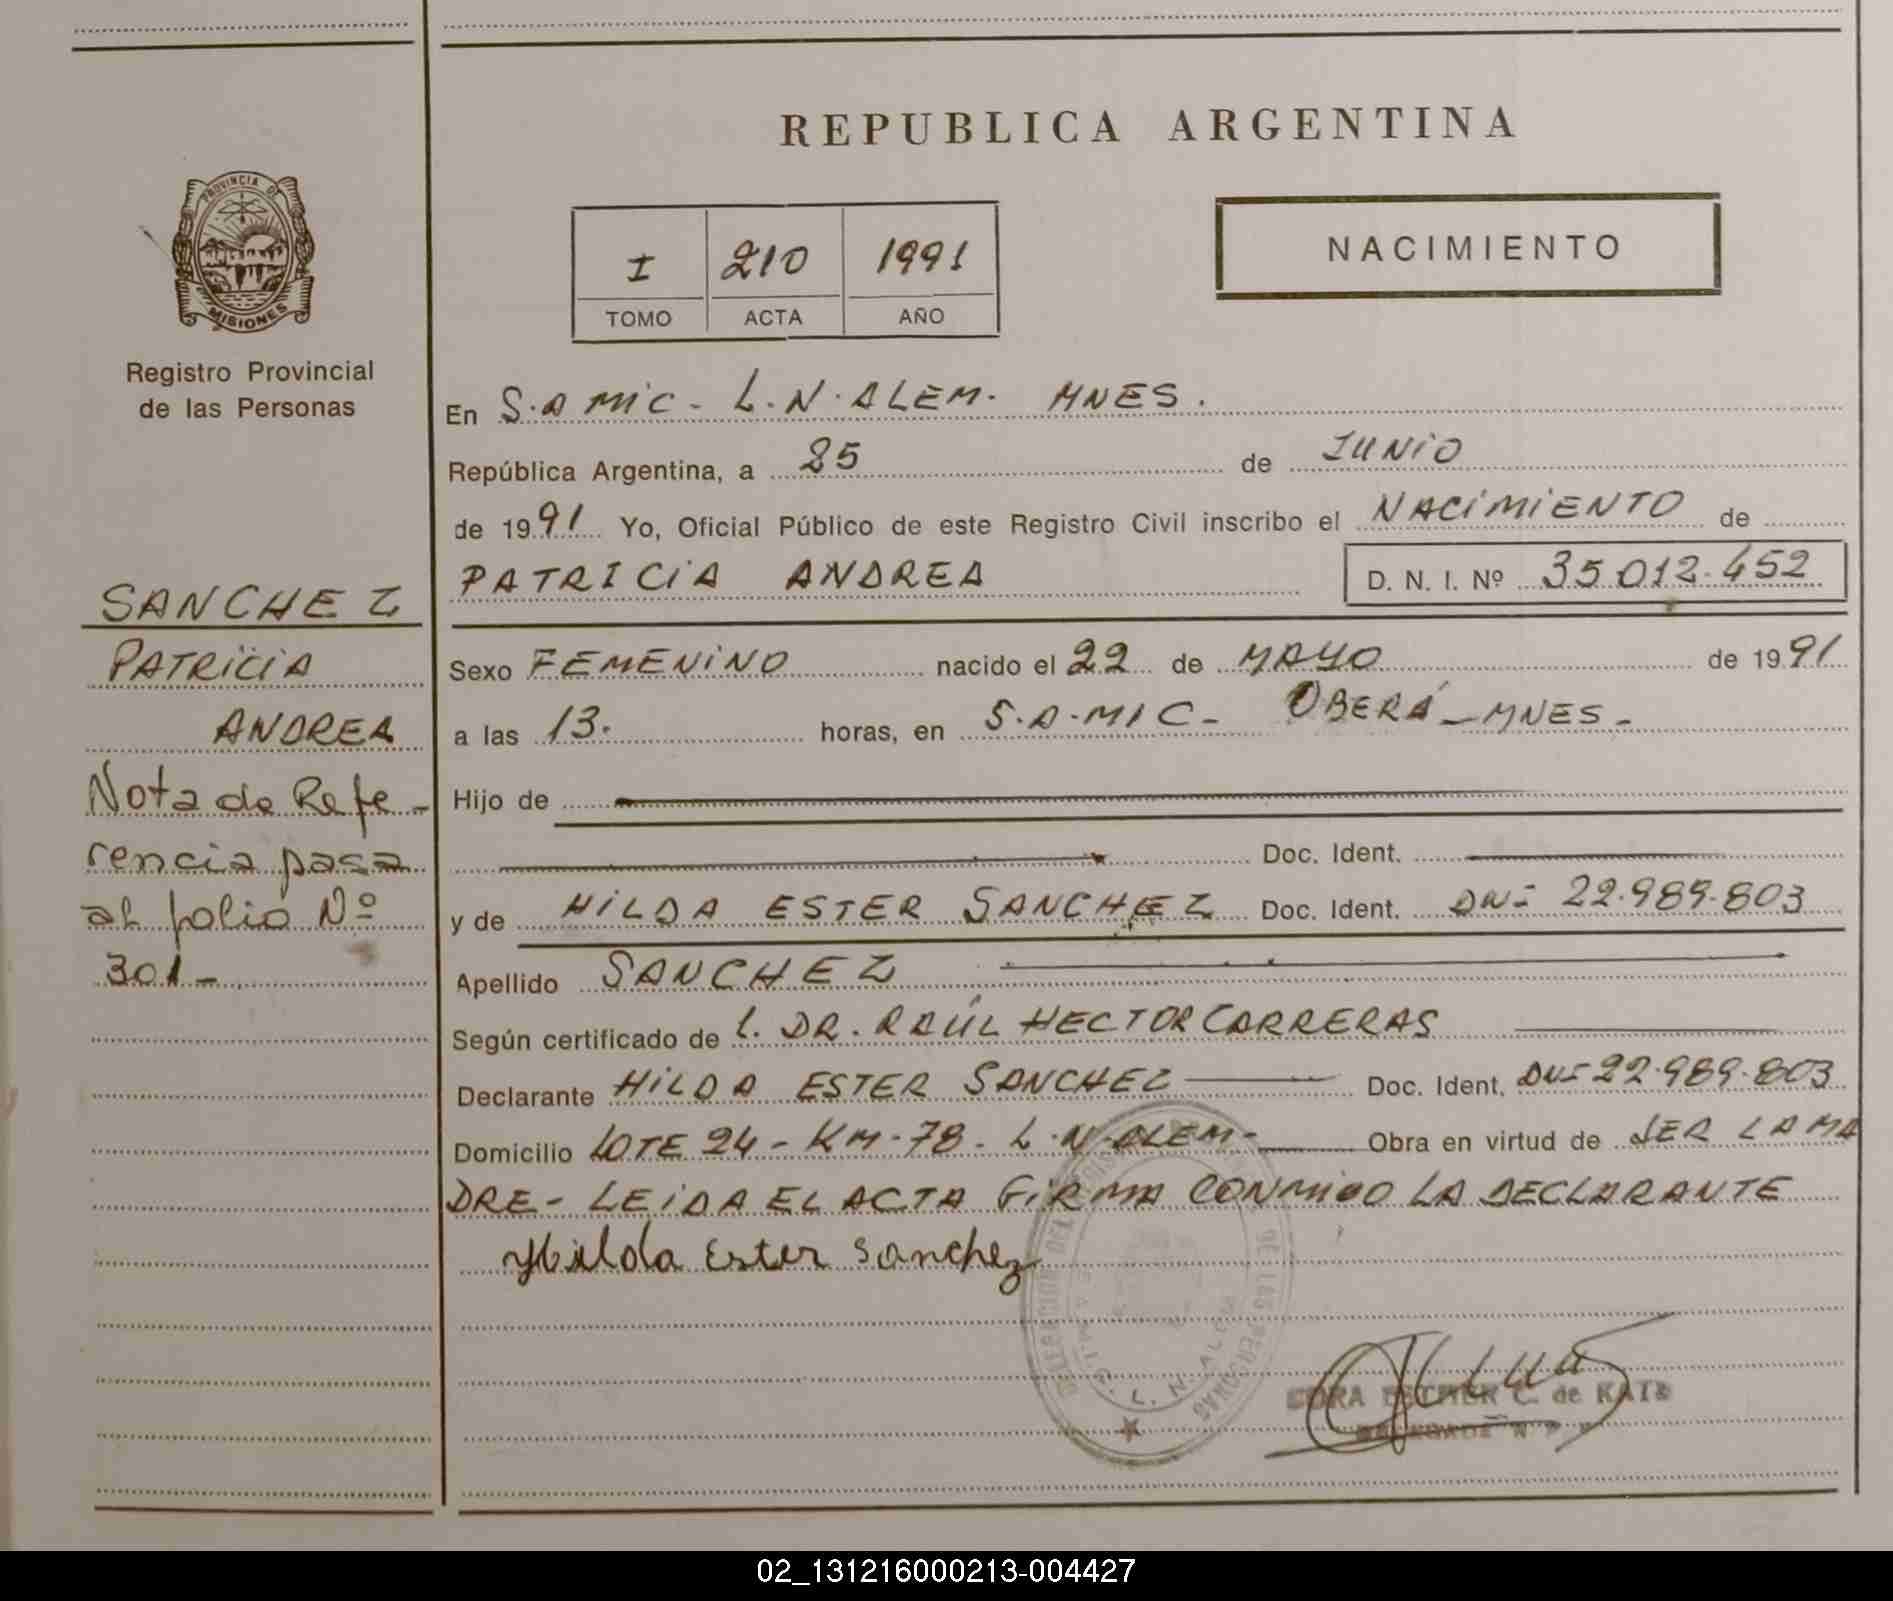 REPUBLICA ARGENTINA
PROVINCIA DE
MISIONES
Registro Provincial
de las Personas
I 210 1991
TOMO ACTA AÑO
NACIMIENTO
En S.A MIC - L.N.ALEM. MNES.
República Argentina, a 25 de JUNIO
de 1991 Yo, Oficial Público de este Registro Civil inscribo el NACIMIENTO de
PATRICIA ANDREA D. N. I. Nº 35 012.452
SANCHEZ
PATRICIA
ANDREA
Nota de Refe-
rencia pasa
al folio Nº
301-
Sexo FEMENINO nacido el 22 de MAYO de 1991
a las 13. horas, en S.A.MIC - OBERÁ - MNES -
Hijo de
Doc. Ident.
y de HILDA ESTER SANCHEZ Doc. Ident. DNI 22.989.803
Apellido SANCHEZ
Según certificado de L. DR. RAÚL HECTOR CARRERAS
Declarante HILDA ESTER SANCHEZ Doc. Ident. DNI 22.989.803
Domicilio LOTE 24 - KM - 78 - L.N.ALEM - Obra en virtud de SER LA MA
DRE - LEIDA EL ACTA FIRMA CONMIGO LA DECLARANTE
Hilda Ester Sanchez
L. N. ALEM
DE LAS PERSONAS
ESTHER C. de KATZ
02_131216000213-004427